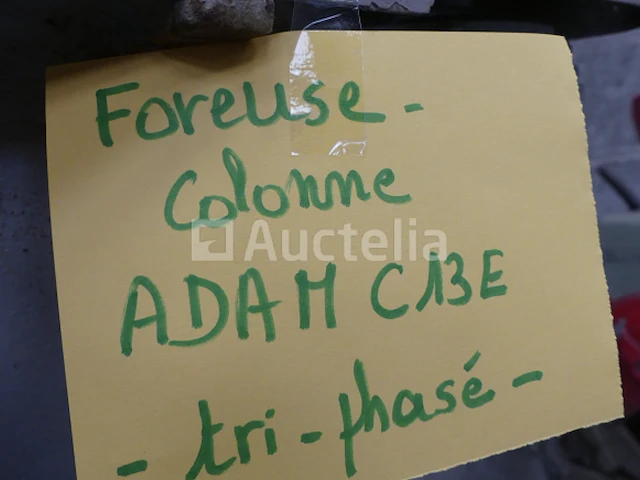 Foreuse -
Colonne
Auctelia
ADAM C13E
- tri - phasé -